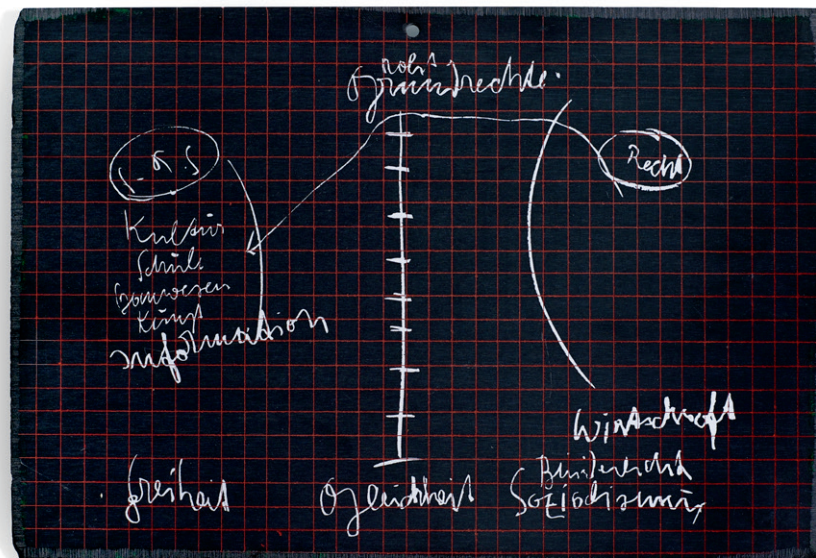 Grundrechte.
Recht
Kultur
Schule
Kunst
Information
Wirtschaft
Freiheit
Gleichheit
Sozialismus